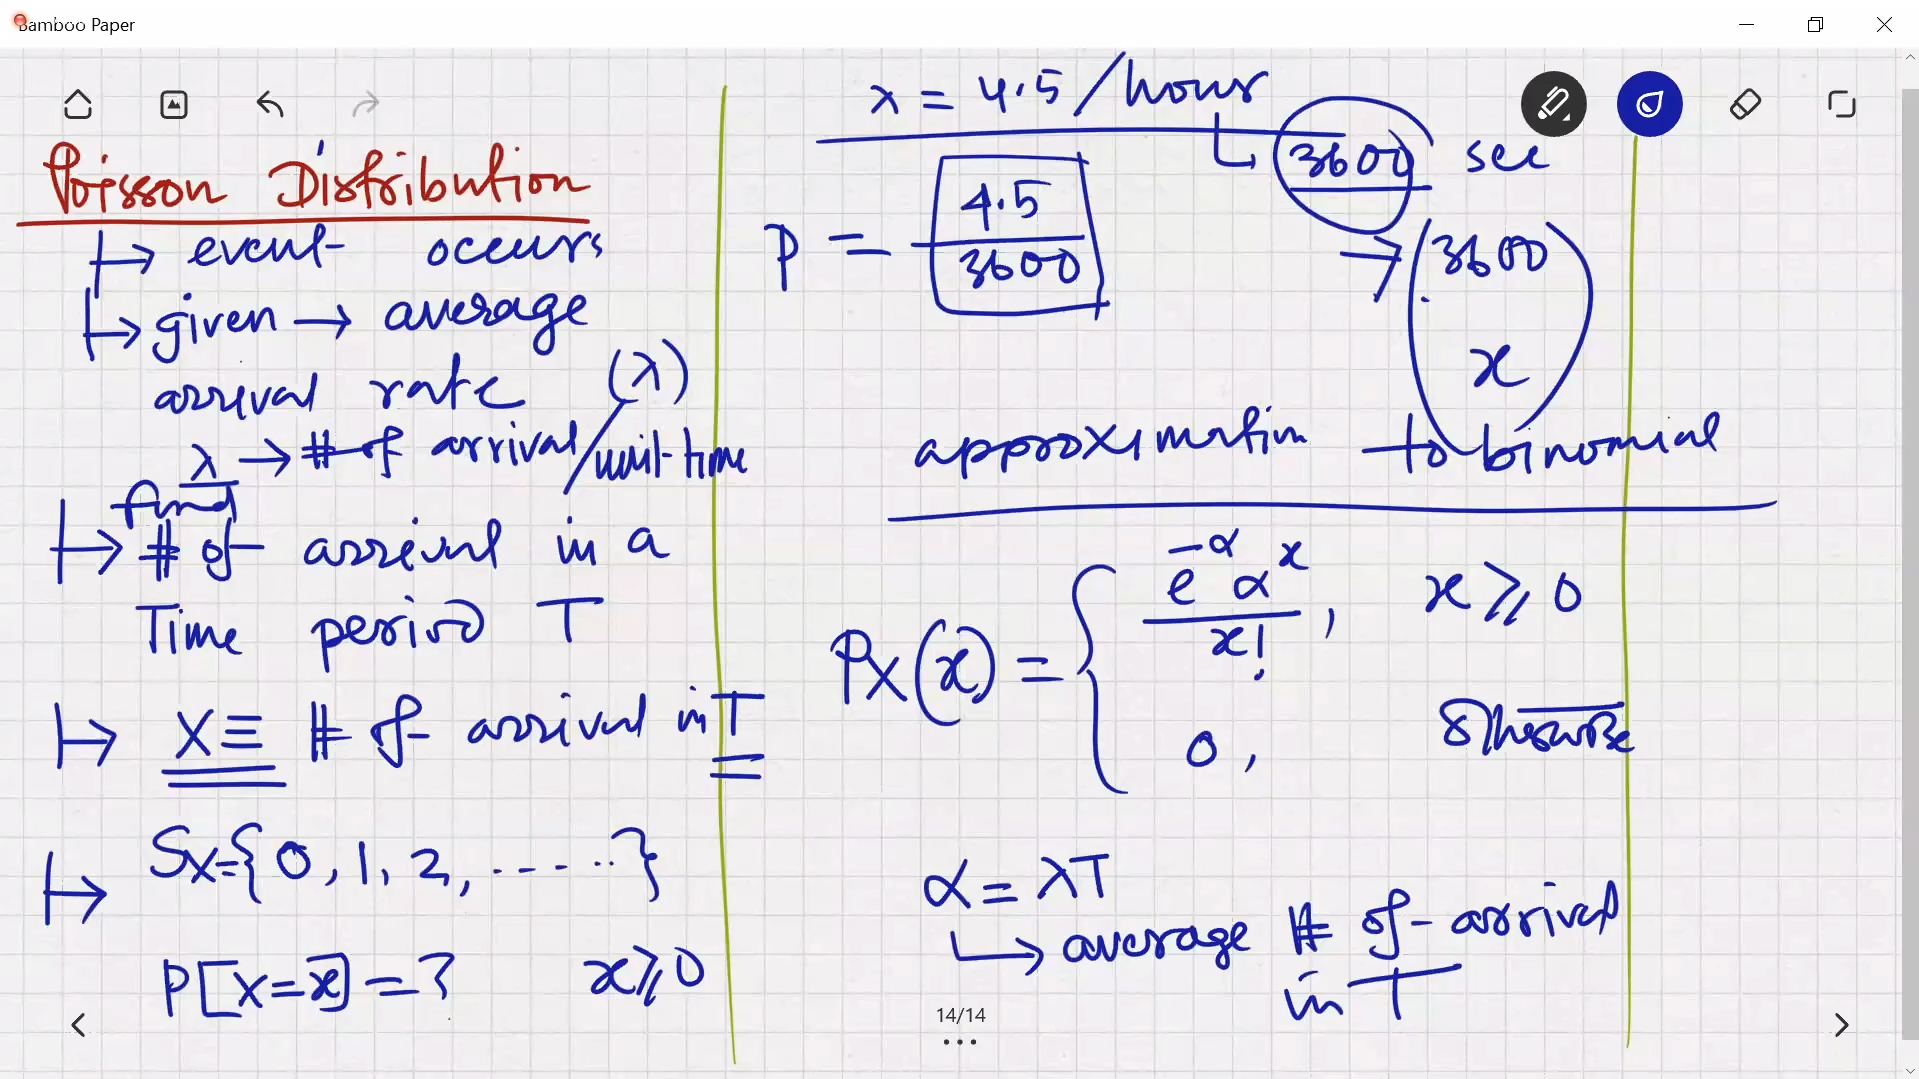 Bamboo Paper
Poisson Distribution
↦ event occurs
↦ given → average
arrival rate (λ)
λ → # of arrival/unit-time
find
↦ # of arrival in a
Time period T
↦ X ≡ # of arrival in T
↦ Sx={0, 1, 2, ......}
P[X=x] = ? x ≥ 0
λ = 4.5 /hour
↳ 3600 sec
P = 4.5/3600
→ (3600
x)
approximation to binomial
Px(x) = { e^-α α^x / x! , x ≥ 0
0, Otherwise
α = λT
↳ average # of arrival
in T
14/14